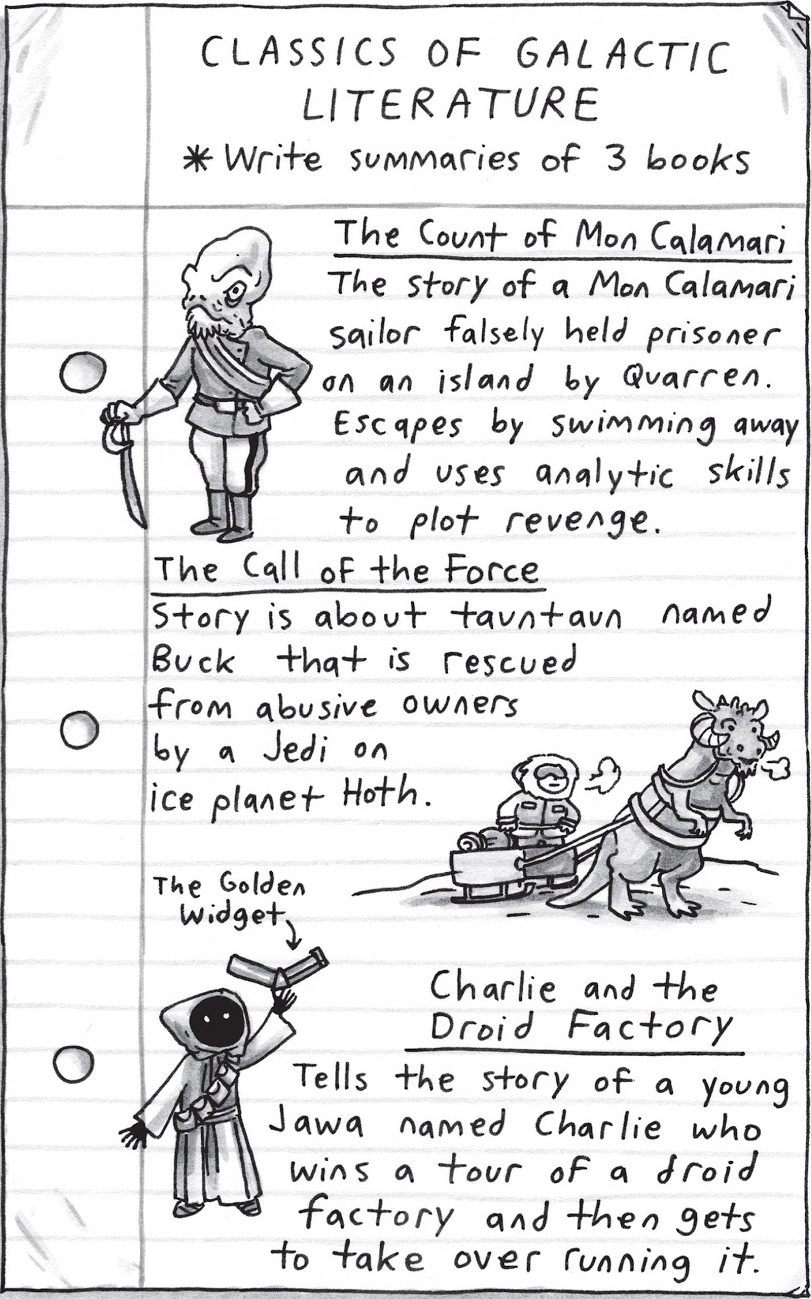 CLASSICS OF GALACTIC
LITERATURE
* Write summaries of 3 books
The Count of Mon Calamari
The story of a Mon Calamari
sailor falsely held prisoner
on an island by Quarren.
Escapes by swimming away
and uses analytic skills
to plot revenge.
The Call of the Force
Story is about tauntaun named
Buck that is rescued
from abusive owners
by a Jedi on
ice planet Hoth.
The Golden
Widget
Charlie and the
Droid Factory
Tells the story of a young
Jawa named Charlie who
wins a tour of a droid
factory and then gets
to take over running it.